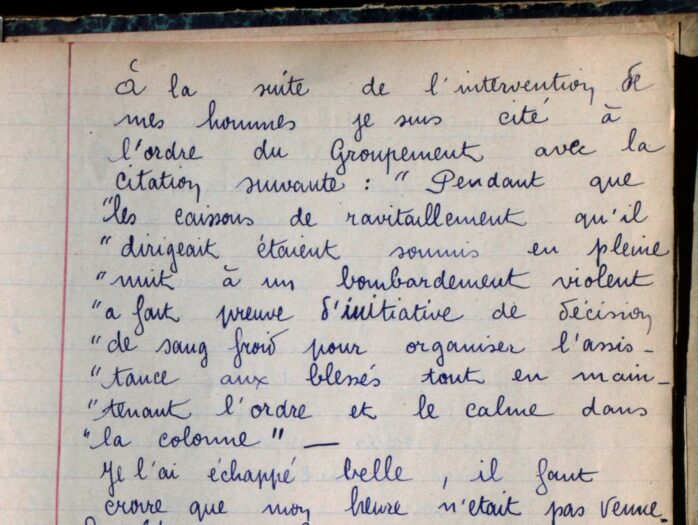 À la suite de l'intervention de
mes hommes je suis cité à
l'ordre du Groupement avec la
citation suivante : " Pendant que
"les caissons de ravitaillement qu'il
"dirigeait étaient soumis en pleine
"nuit à un bombardement violent
"a fait preuve d'initiative de décision
"de sang froid pour organiser l'assis-
"tance aux blessés tout en main-
"tenant l'ordre et le calme dans
"la colonne" —
Je l'ai échappé belle, il faut
croire que mon heure n'était pas venue.